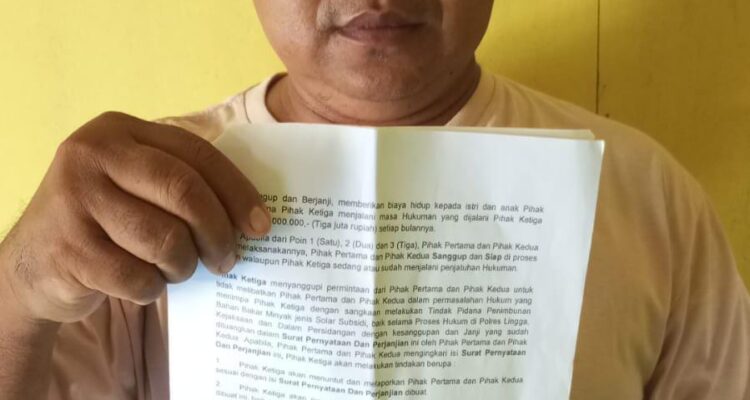 gup dan Berjanji, memberikan biaya hidup kepada istri dan anak Pihak
Pihak Ketiga menjalani masa Hukuman yang dijalani Pihak Ketiga
000.000,- (Tiga juta rupiah) setiap bulannya.
Apabila dari Poin 1 (Satu), 2 (Dua) dan 3 (Tiga), Pihak Pertama dan Pihak Kedua
melaksanakannya, Pihak Pertama dan Pihak Kedua Sanggup dan Siap di proses
walaupun Pihak Ketiga sedang atau sudah menjalani penjatuhan Hukuman.
Ketiga menyanggupi permintaan dari Pihak Pertama dan Pihak Kedua untuk
tidak melibatkan Pihak Pertama dan Pihak Kedua dalam permasalahan Hukum yang
menimpa Pihak Ketiga dengan sangkaan melakukan Tindak Pidana Penimbunan
Bahan Bakar Minyak jenis Solar Subsidi, baik selama Proses Hukum di Polres Lingga,
Kejaksaan dan Dalam Persidangan dengan kesanggupan dan Janji yang sudah
dituangkan dalam Surat Pernyataan Dan Perjanjian ini oleh Pihak Pertama dan Pihak
Kedua. Apabila, Pihak Pertama dan Pihak Kedua mengingkari isi Surat Pernyataan
Dan Perjanjian ini, Pihak Ketiga akan melakukan tindakan berupa :
1. Pihak Ketiga akan menuntut dan melaporkan Pihak Pertama dan Pihak Kedua
sesuai dengan isi Surat Pernyataan Dan Perjanjian dibuat.
2. Pihak Ketiga akan
dibuat ini